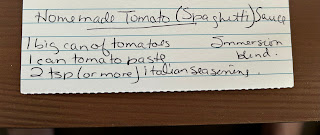 Homemade Tomato (Spaghetti) Sauce
1 big can of tomatoes
1 can tomato paste
2 tsp (or more) italian seasoning
Immersion
blend.